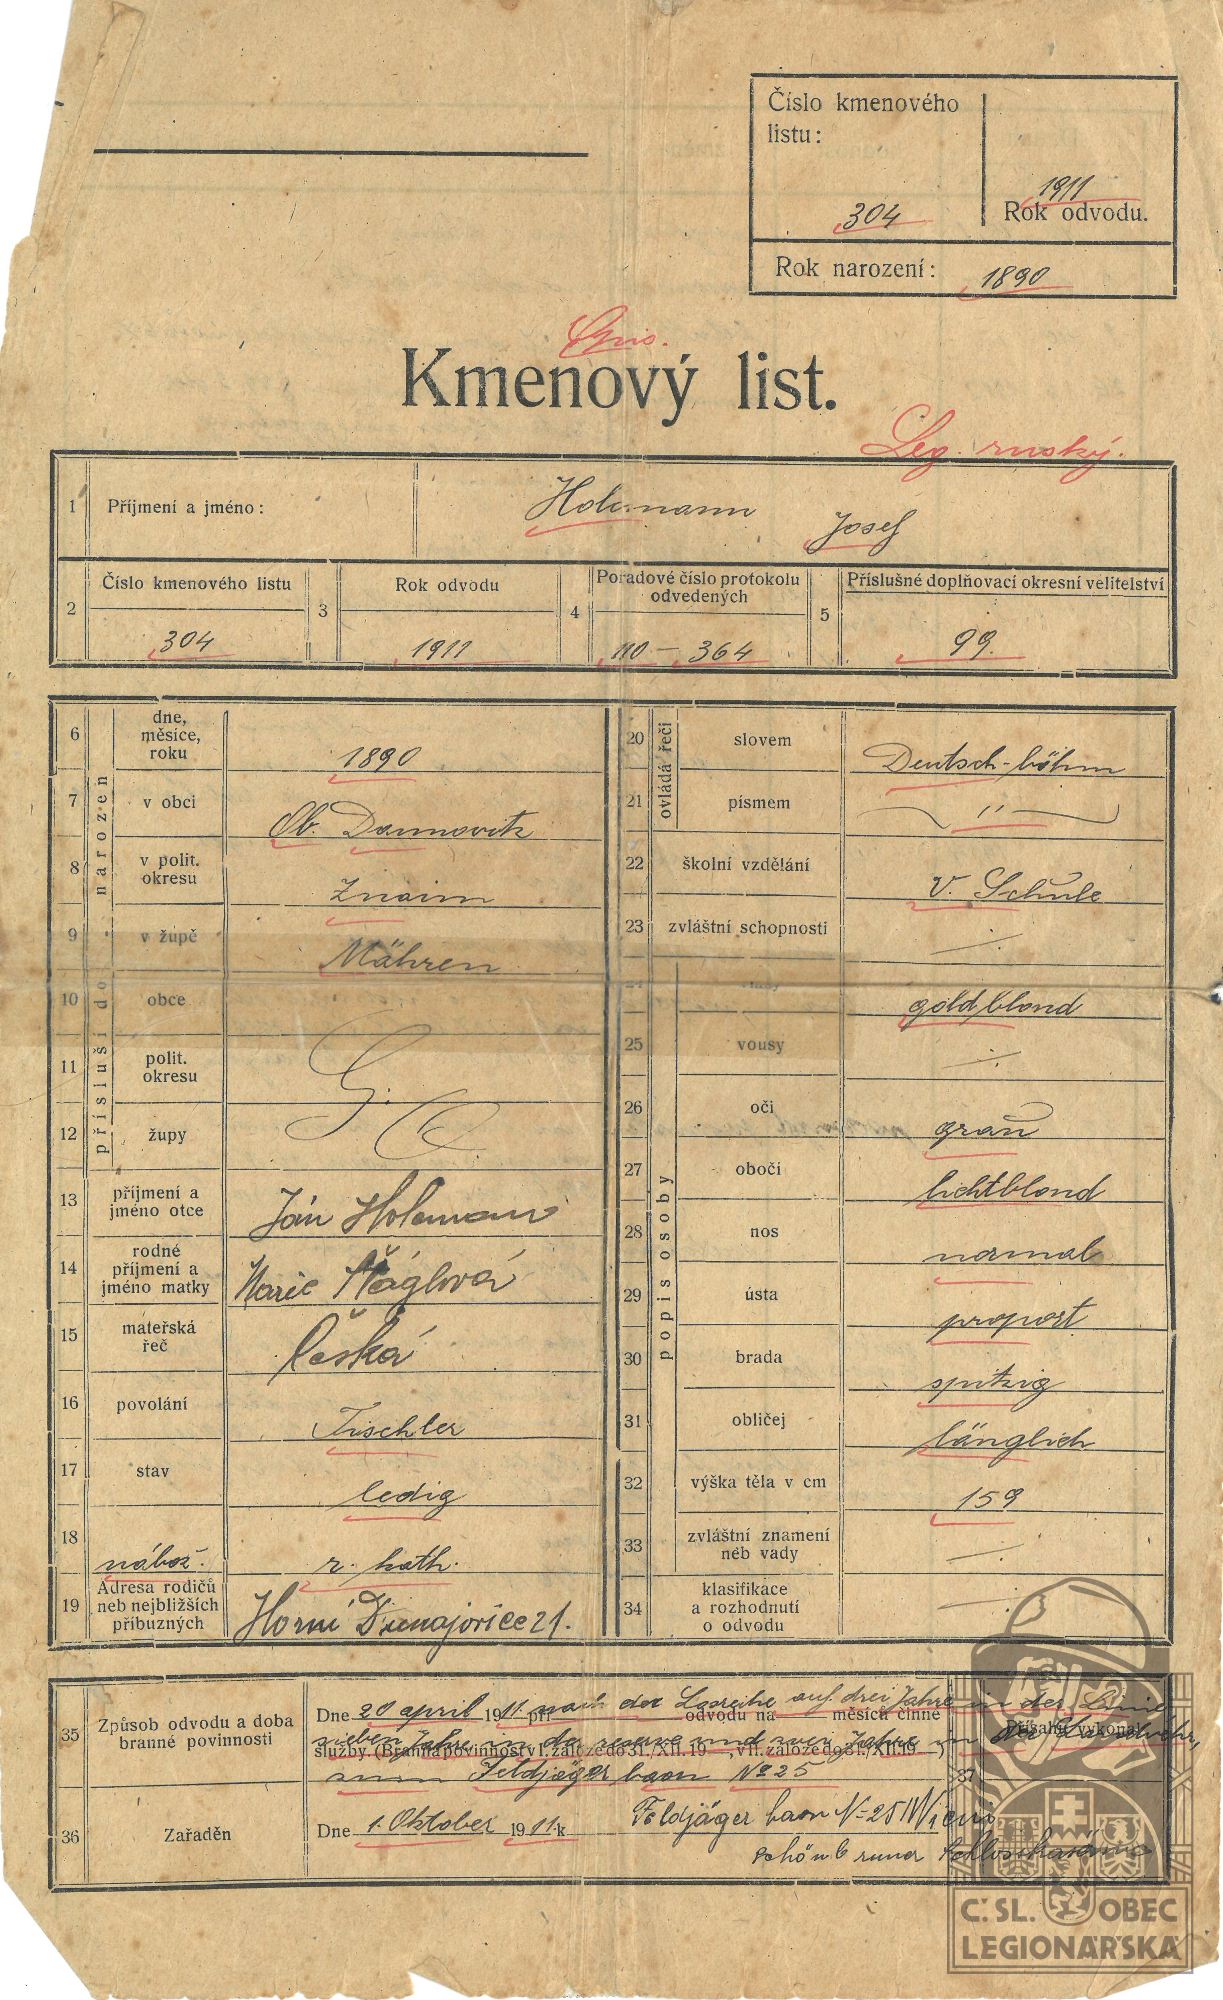 Číslo kmenového
listu:
304
1911
Rok odvodu.
Rok narození: 1890
Kmenový list.
Leg. ruský.
1 Příjmení a jméno: Holemann Josef
2 Číslo kmenového listu 304
3 Rok odvodu 1911
4 Pořadové číslo protokolu odvedených 110 – 364
5 Příslušné doplňovací okresní velitelství 99.
narozen
6 dne, měsíce, roku 1890
7 v obci Ob. Dannowitz
8 v polit. okresu Znaim
9 v župě Mähren
přísluší do
10 obce
11 polit. okresu
12 župy
13 příjmení a jméno otce Ján Holeman
14 rodné příjmení a jméno matky Marie
15 mateřská řeč česká
16 povolání Tischler
17 stav ledig
18 nábož. r. kath.
19 Adresa rodičů neb nejbližších příbuzných Horní Dunajovice 21.
ovládá řeči
20 slovem Deutsch-böhm
21 písmem "
22 školní vzdělání V. Schule
23 zvláštní schopnosti ./.
popis osoby
24 vlasy goldblond
25 vousy ./.
26 oči grau
27 obočí lichtblond
28 nos normal
29 ústa proport
30 brada spitzig
31 obličej länglich
32 výška těla v cm 159
33 zvláštní znamení neb vady ./.
34 klasifikace a rozhodnutí o odvodu ./.
35 Způsob odvodu a doba branné povinnosti
Dne 20 april 1911 nach der Losreihe auf drei Jahre in der Linie
při odvodu na měsíců činné
sieben Jahre in der reserve und zwei Jahre in der Landwehr,
služby (Branná povinnost v I. záloze do 31./XII. 19 , v II. záloze do 31./XII. 19 )
Přísahu vykonal
zum Feldjäger baon No 25
37
36 Zařaděn
Dne 1. Oktober 1911 k Feldjäger baon N=25 Wien
Schönbrunn
Č.SL. OBEC
LEGIONÁŘSKÁ